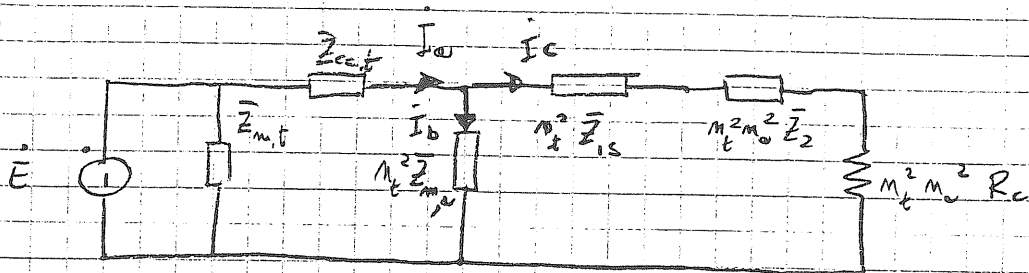 Z̄cc,t
İa
İc
Z̄m,t
İb
nt² Z̄1s
nt² na² Z̄2
Ė
nt² Z̄m,a
nt² na² Rc